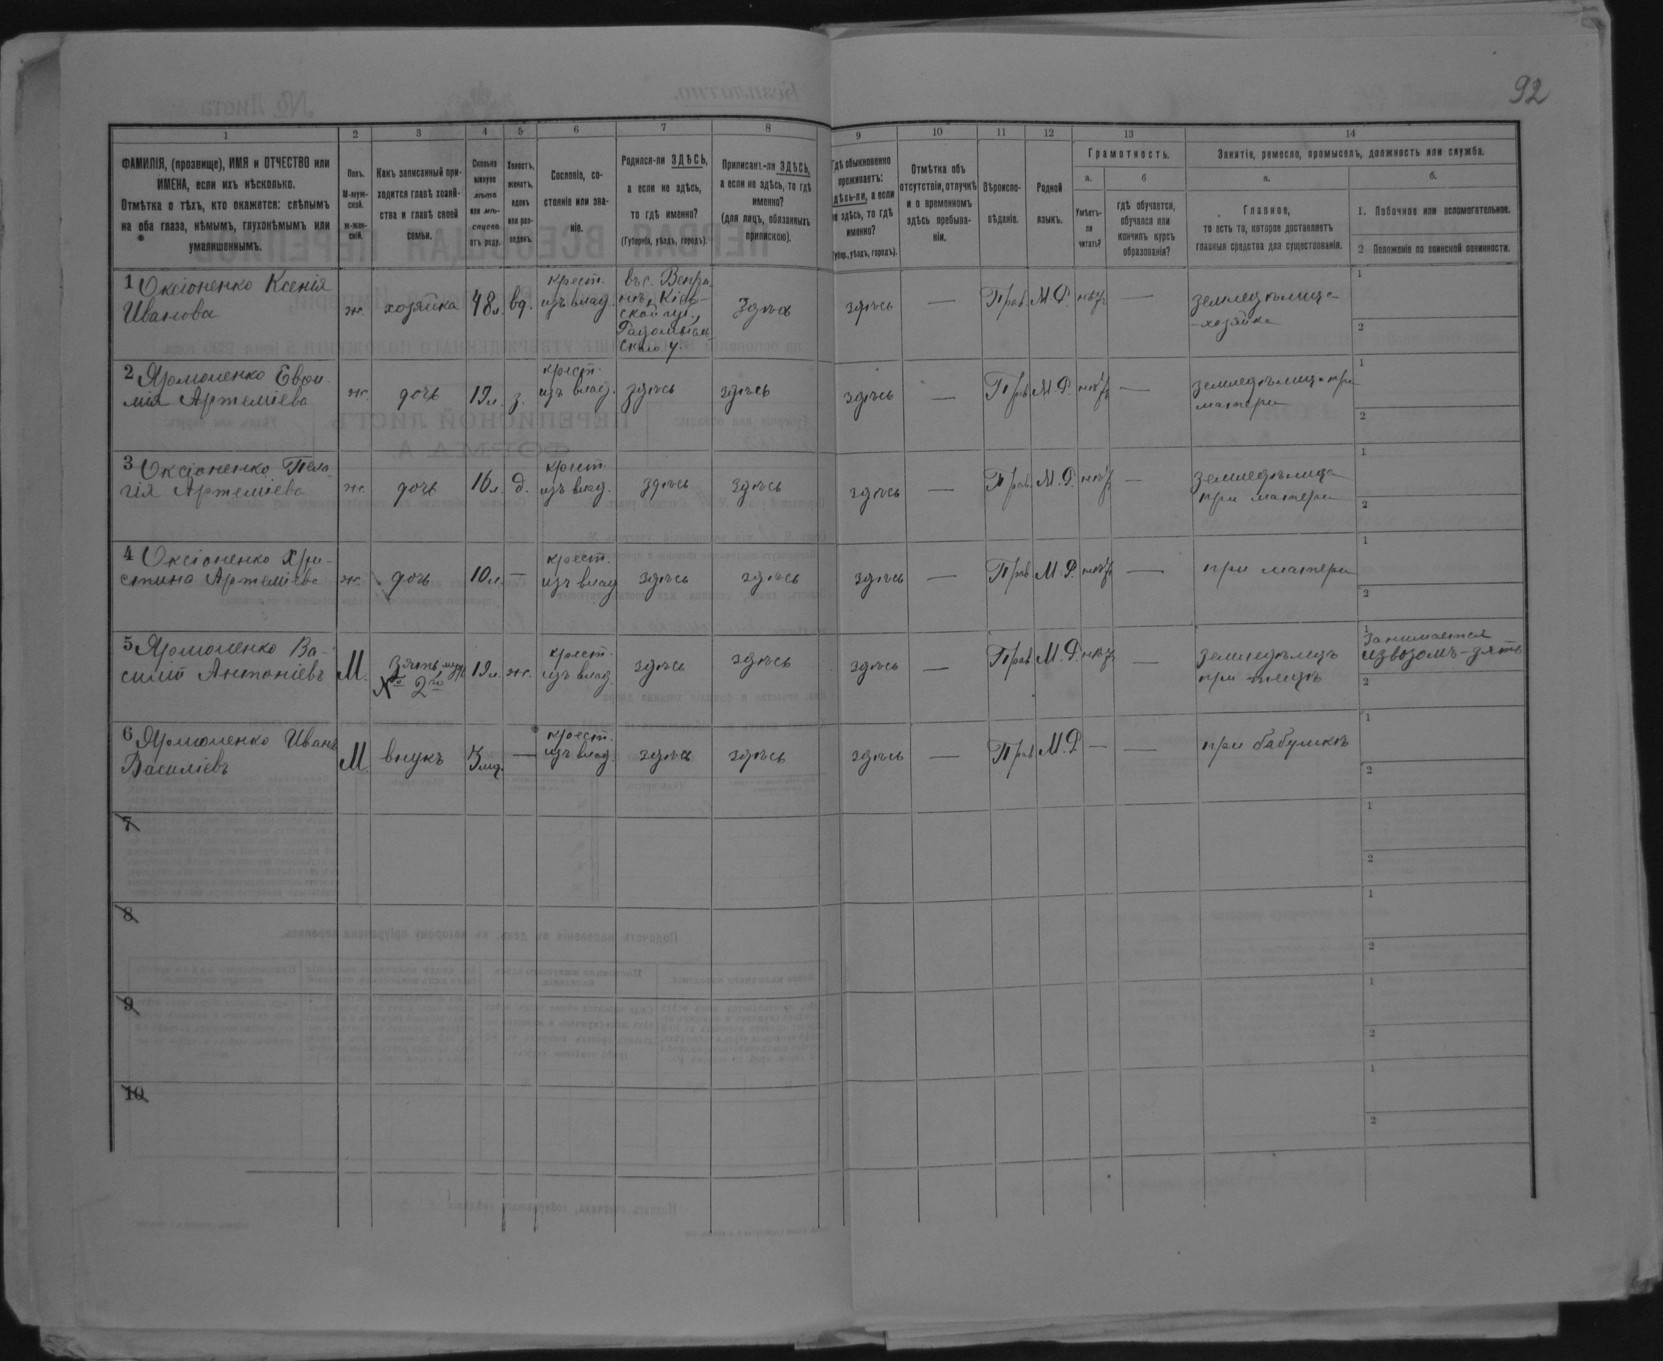 92
1 2 3 4 5 6 7 8 9 10 11 12 13 14
ФАМИЛІЯ, (прозвище), ИМЯ и ОТЧЕСТВО или
ИМЕНА, если ихъ нѣсколько.
Отмѣтка о тѣхъ, кто окажется: слѣпымъ
на оба глаза, нѣмымъ, глухонѣмымъ или
умалишеннымъ.
Полъ.
М-муж-
ской.
ж-жен-
скій.
Какъ записанный при-
ходится главѣ хозяй-
ства и главѣ своей
семьи.
Сколько
минуло
лѣтъ
или мѣ-
сяцевъ
отъ роду.
Холостъ,
женатъ,
вдовъ
или раз-
веденъ.
Сословіе, со-
стояніе или зва-
ніе.
Родился-ли ЗДѢСЬ,
а если не здѣсь,
то гдѣ именно?
(Губернія, уѣздъ, городъ).
Приписанъ-ли ЗДѢСЬ,
а если не здѣсь, то гдѣ
именно?
(для лицъ, обязанныхъ
припискою).
Гдѣ обыкновенно
проживаетъ:
здѣсь-ли, а если
не здѣсь, то гдѣ
именно?
(Губер., уѣздъ, городъ).
Отмѣтка объ
отсутствіи, отлучкѣ
и о временномъ
здѣсь пребыва-
ніи.
Вѣроиспо-
вѣданіе.
Родной
языкъ.
Грамотность.
а.
Умѣетъ-
ли
читать?
б
гдѣ обучается,
обучался или
кончилъ курсъ
образованія?
Занятіе, ремесло, промыселъ, должность или служба.
а.
Главное,
то есть то, которое доставляетъ
главныя средства для существованія.
б.
1. Побочное или вспомогательное.
2 Положеніе по воинской повинности.
1 Оксіоненко Ксенія
Иванова
ж.
хозяйка
48 л.
вд.
крест.
изъ влад.
въ с. Вепри-
нѣ, Кіев-
ской губ.,
Радомысл-
скаго у.
Здѣсь
здѣсь
—
Прав.
М.Р.
нѣтъ
—
земледѣлица-
-хозяйка
1
2
2 Ярмоленко Евфи-
мія Артеміева
ж.
дочь
19 л.
з.
крест.
изъ влад.
здѣсь
здѣсь
здѣсь
—
Прав.
М.Р.
нѣтъ
—
земледѣлица при
матери
1
2
3 Оксіоненко Пела-
гія Артеміева
ж.
дочь
16 л.
д.
крест.
изъ влад.
здѣсь
здѣсь
здѣсь
—
Прав.
М.Р.
нѣтъ
—
земледѣлица
при матери
1
2
4 Оксіоненко Хри-
стина Артеміева
ж.
дочь
10 л.
—
крест.
изъ влад
здѣсь
здѣсь
здѣсь
—
Прав.
М.Р.
нѣтъ
—
при матери
1
2
5 Ярмоленко Ва-
силій Антоніевъ
М.
Зять мужъ
2й
19 л.
ж.
крест.
изъ влад.
здѣсь
здѣсь
здѣсь
—
Прав.
М.Р.
нѣтъ
—
земледѣлецъ
при тещѣ
1
Занимается
извозомъ-зять
2
6 Ярмоленко Иванъ
Василіевъ
М.
внукъ
—
крест.
изъ влад.
здѣсь
здѣсь
здѣсь
—
Прав.
М.Р.
—
—
при бабушкѣ
1
2
7
1
2
8
1
2
9
1
2
10
1
2